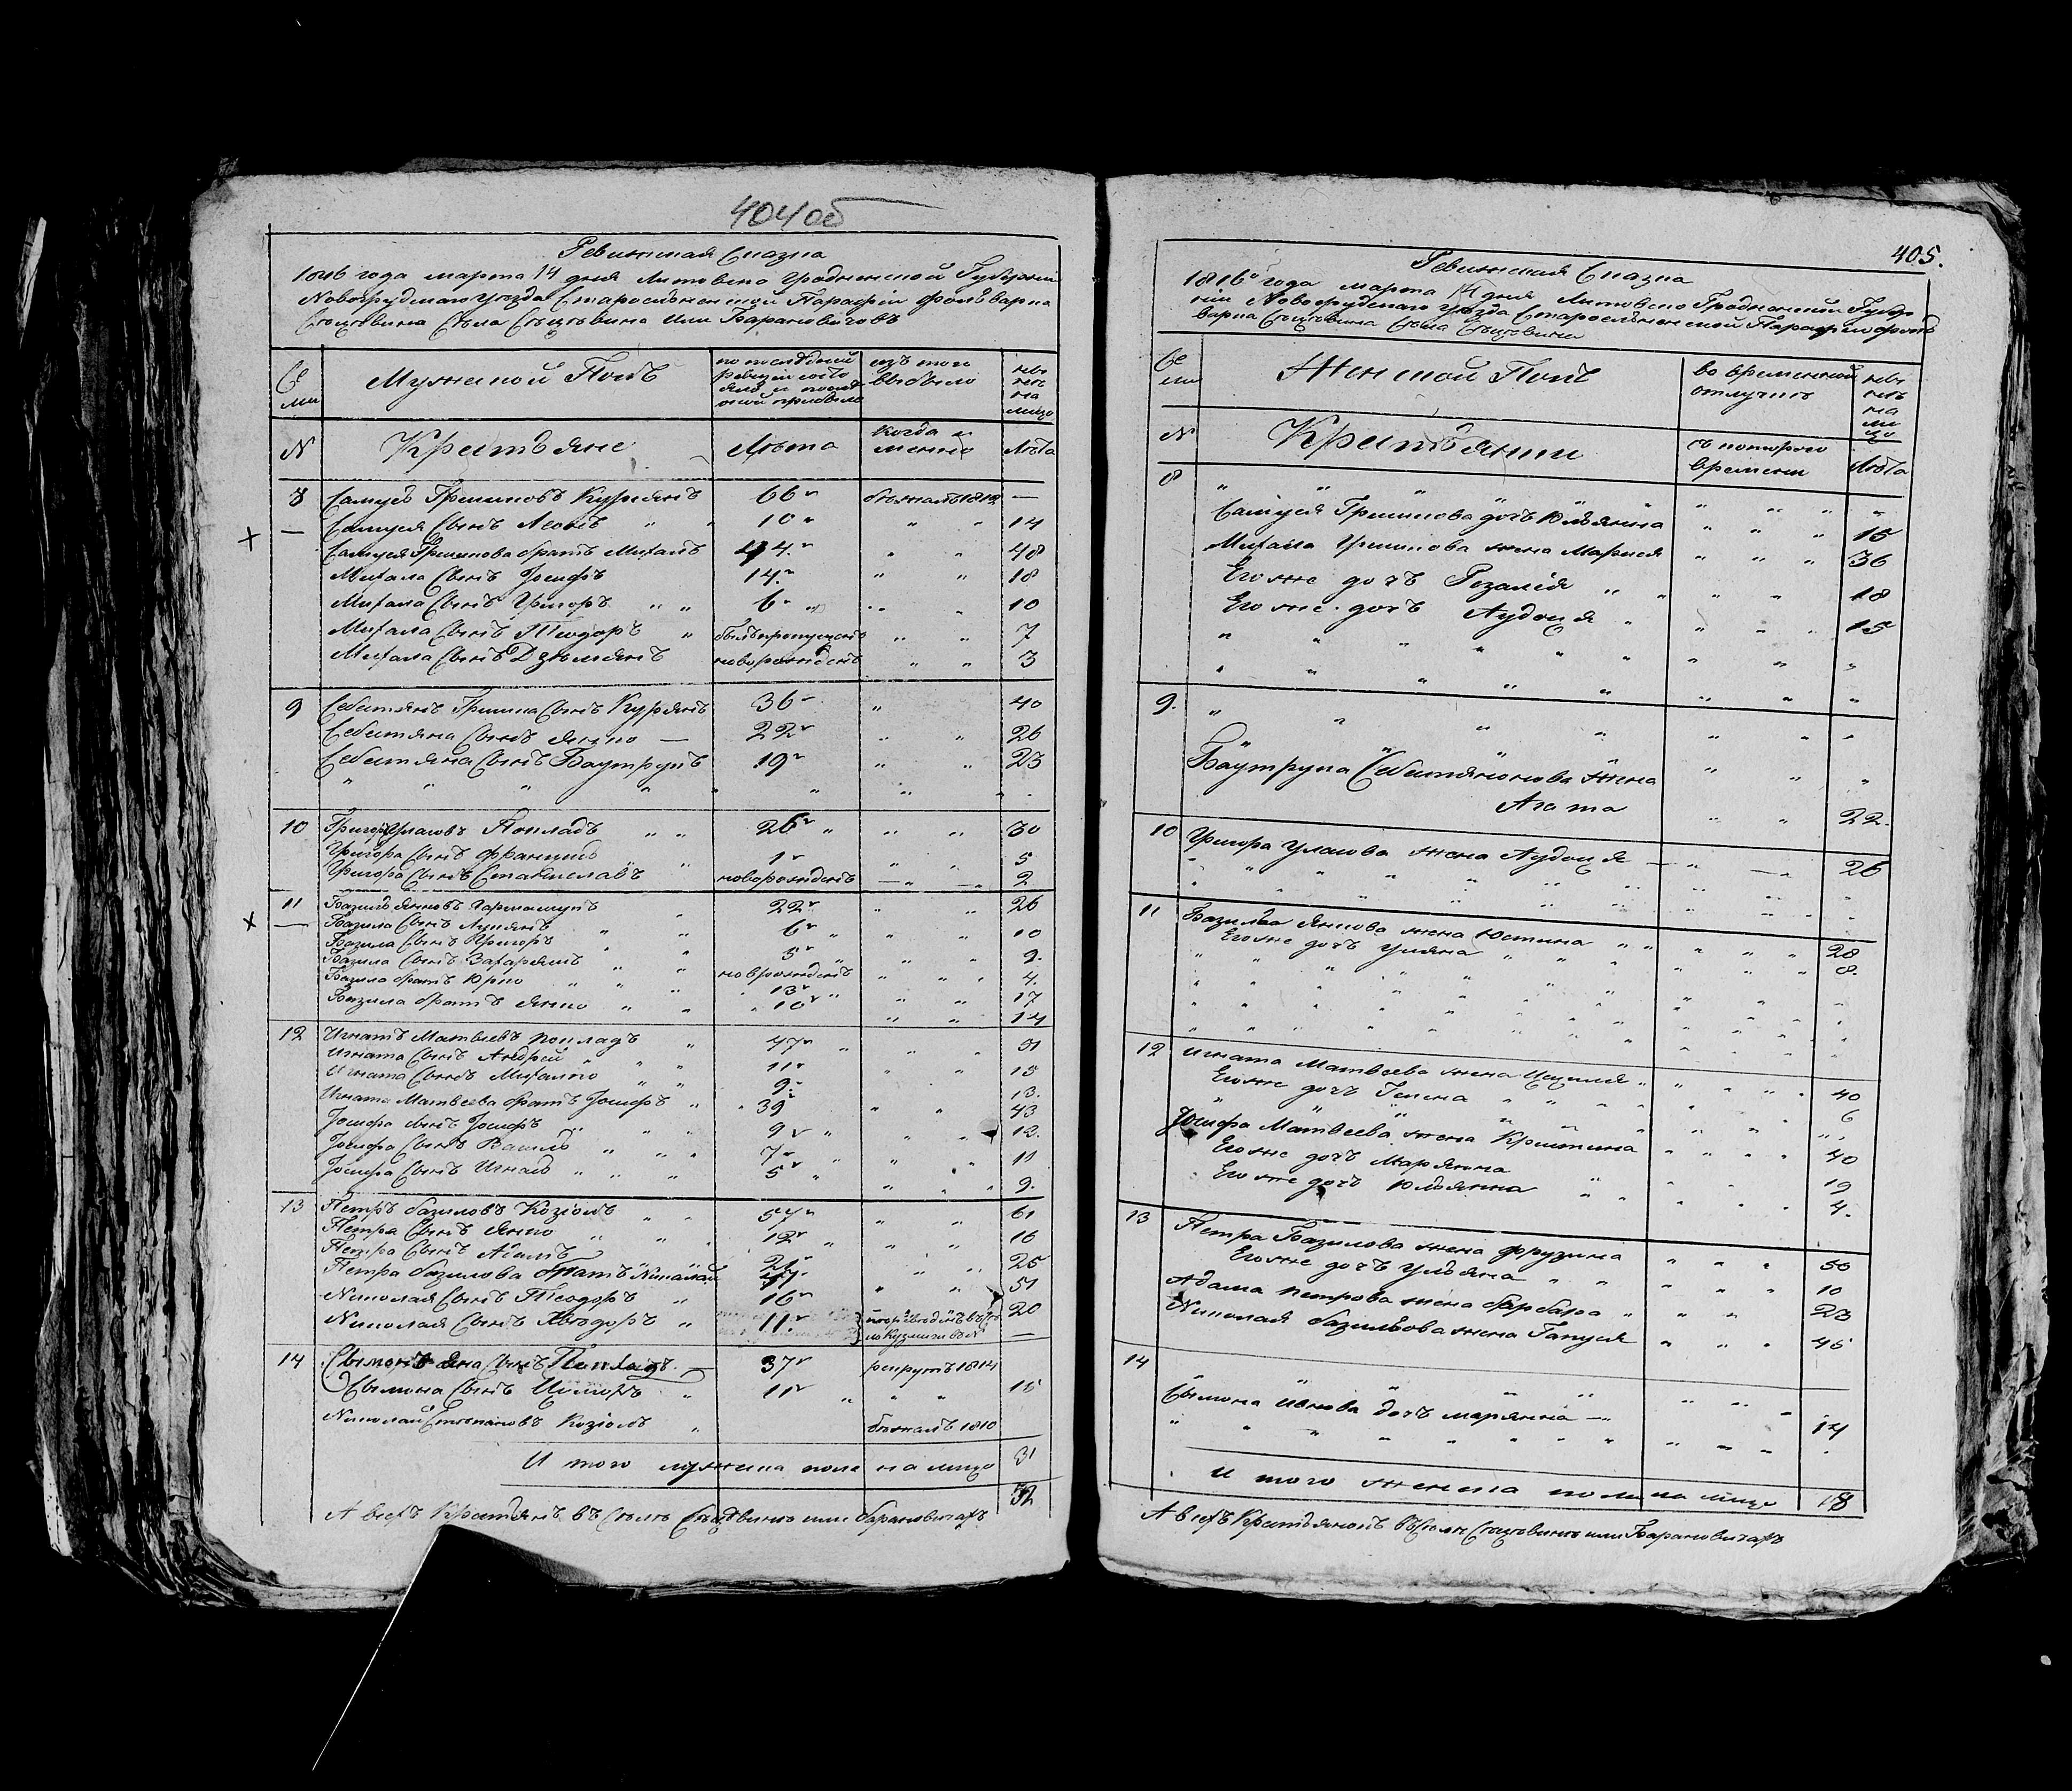 404об
Ревижская Сказка
1816 года марта 14 дня Литовско Гродненской Губернии
Новогрудскаго уезда Старосельненской Парафіи фольварка
Стецевина Села Стецевина или Барановичовъ
Се мьи
Мужской Полъ
по последней ревизіи состояло и после оной прибыло
изъ того выбыло
ныне на лицо
N
Крестьяне
Лѣта
когда именно
Лѣта
8 Самуев Гришковъ Курьянъ 66 бѣжалъ 1812 —
Самуся Сынъ Леонъ " 10 " " 14
Самуся Гришкова братъ Михалъ 44 " " 48
Михала Сынъ Іосифъ 14 " " 18
Михала Сынъ Григоръ " " 6 " " 10
Михала Сынъ Теодоръ " былъ пропущенъ " " 7
Михала Сынъ Дземьянъ новорожденъ " " 3
9 Себестьянъ Гришка Сынъ Курьянъ 36 " 40
Себестьяна Сынъ Янко — 22 " " 26
Себестьяна Сынъ Баутрукъ 19 " " 23
10 Григоръ Улasовъ Покладъ " " 26 " " " 30
Григора Сынъ Францишъ 1 " " 5
Григора Сынъ Станиславъ " новорожденъ — — 2
11 Базиль Янковъ 22 " " 26
Базиля Сынъ Лукьянъ " " 6 " " 10
Базиля Сынъ Григоръ " " 5 " " 9
Базиля Сынъ Захарьяшъ " " новорожденъ " " 4
Базиля братъ Юрко " " 13 " " 17
Базиля братъ Янко " " 10 " " 14
12 Игнатъ Матвеевъ Покладъ " 47 " " 51
Игната Сынъ Андрей " " 11 " " 15
Игната Сынъ Михалко " " 9 13
Игната Матвеева братъ Іосифъ " 39 " " 43
Іосифа сынъ Іосифъ " " 9 " " 13
Іосифа Сынъ Василь " " 7 " " 11
Іосифа Сынъ Игнатъ " " 5 " " 9
13 Петръ Базиловъ Козіолъ " " 57 " " 61
Петра Сынъ Янко " " 12 " " 16
Петра Сынъ Адамъ 21 " " 25
Петра Базилова братъ Николай 47 " " 51
Николая Сынъ Теодоръ " 16 20
Николая Сынъ " 11 —
14 Сымонъ Яна Сынъ Покладъ 37 рекрутъ 1814
Сымона Сынъ " 11 " " 15
Николай Степановъ Козіолъ " бѣжалъ 1810
И того мужеска пола на лицо 31
32
А всехъ Крестьянъ въ Селе Стецевине или Барановичахъ
405.
Ревижская Сказка
1816 года марта 14 дня Литовско Гродненской Губер
ніи Новогрудскаго уезда Старосельненской Парафіи фоль
варка Стецевина Села Стецевины
Се мьи
Женской Полъ
во временной отлучке
ныне на лицо
N
Крестьянки
съ котораго времени
Лѣта
8 " " " " "
Самуся Гришкова дочъ Юльянна " " 15
Михала Гришкова жена Марися " " 36
Его же дочъ Розалія " " 18
Его же дочъ Аудоця " " 15
9. " " " "
Баутрука Себестьянова Жена
Агата " " 22.
10 Григора Улasова жена Аудоця — " " 26
11 Базиля Янкова жена Юстина " " " 28
Его же дочъ Ульяна " " 8.
12 Игната Матвеева жена Цецилія " " 40
Его же дочъ Гелена " " 6
Іосифа Матвеева жена Криштина " " 40
Его же дочъ Марьянна " " 19
Его же дочъ Юльянна " " 4.
13 Петра Базилова жена Фрузина " " 50
Его же дочъ Ульяна " " 10
Адама Петрова жена Барбара " " 23
Николая Базилёва жена Гануся " " 45
14 " " "
Сымона Янкова дочъ Марьянна — 14
И того женска пола на лицо 18
А всехъ Крестьянокъ въ Селе Стецевине или Барановичахъ